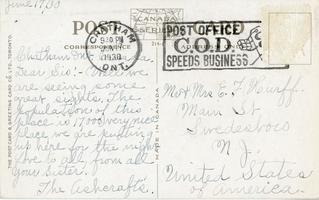 June, 1930
POST CARD
CANADA
CHATHAM
930 PM
1930
ONT.
POST OFFICE
C.O.D.
SPEEDS BUSINESS
CORRESPONDENCE
ADDRESS
Chatham Ont
Dear Sis:- Well we
are seeing some
great sights. The
population of this
place is 1700 very nice
place we are putting
up here for the night
love to all, from all
your Sister.
The Ashcrafts.
Mr & Mrs E. F.
Main St
Swedesboro
N. J.
United States
of America.
THE POST CARD & GREETING CARD CO. LTD., TORONTO.